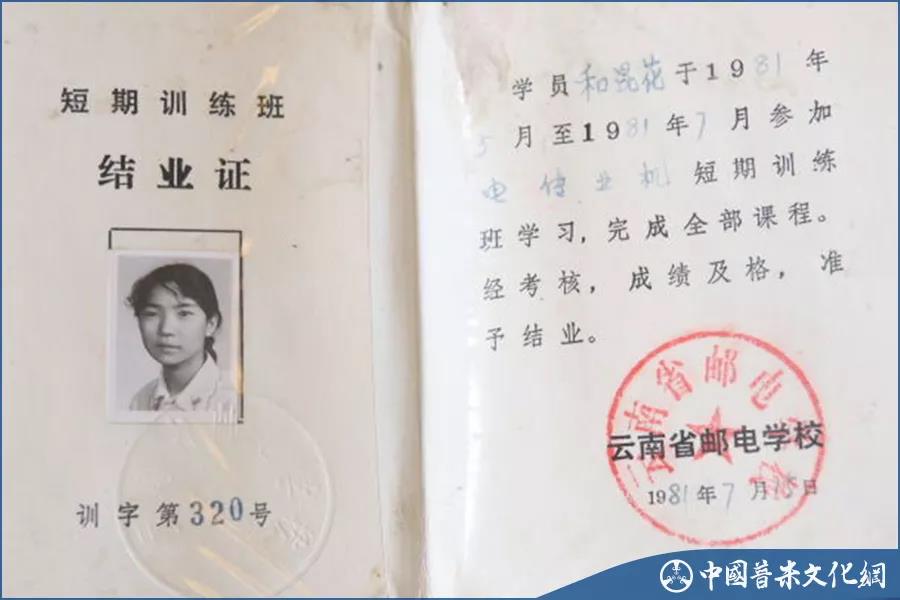 短期训练班
结业证
训字第320号
学员和昆花于1981年
5月至1981年7月参加
电传业机短期训练
班学习,完成全部课程。
经考核,成绩及格,准
予结业。
云南省邮电学校
云南省邮电学校
1981年7月15日
中國普米文化網